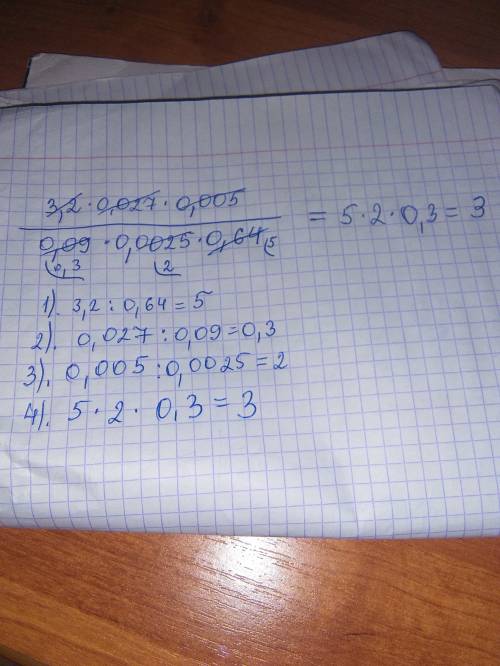 3,2 · 0,027 · 0,005
0,09 · 0,0025 · 0,64 5 = 5 · 2 · 0,3 = 3
0,3 2
1). 3,2 : 0,64 = 5
2). 0,027 : 0,09 = 0,3
3). 0,005 : 0,0025 = 2
4). 5 · 2 · 0,3 = 3